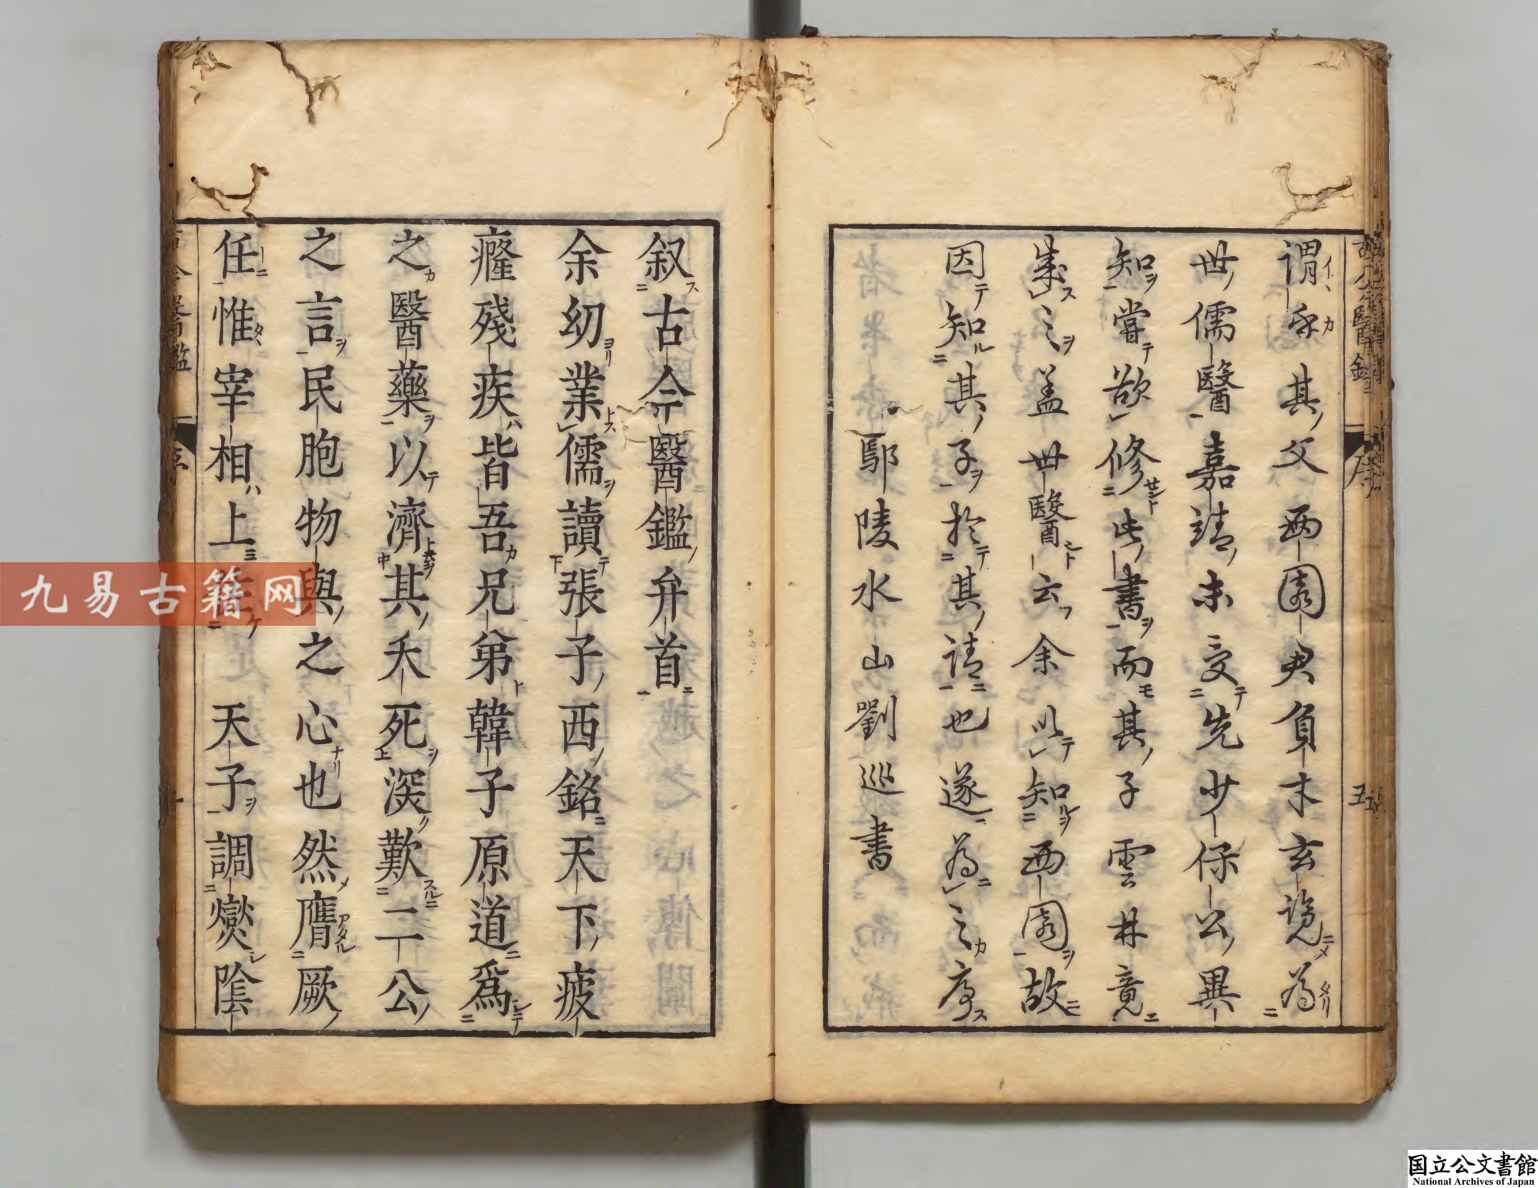 古今醫鑑 序 五
謂承其父西園君負才玄覽為
世儒醫嘉靖末受先少保公異
知嘗欲修此書而其子雲林竟
成之蓋世醫云余以知西園故
因知其子於其請也遂為之序
鄢陵水山劉巡書
叙古今醫鑑弁首
余幼業儒讀張子西銘天下疲
癃殘疾皆吾兄弟韓子原道爲
之醫藥以濟其夭死深歎二公
之言民胞物與之心也然膺厥
任惟宰相上天子調燮陰
九易古籍网
国立公文書館
National Archives of Japan